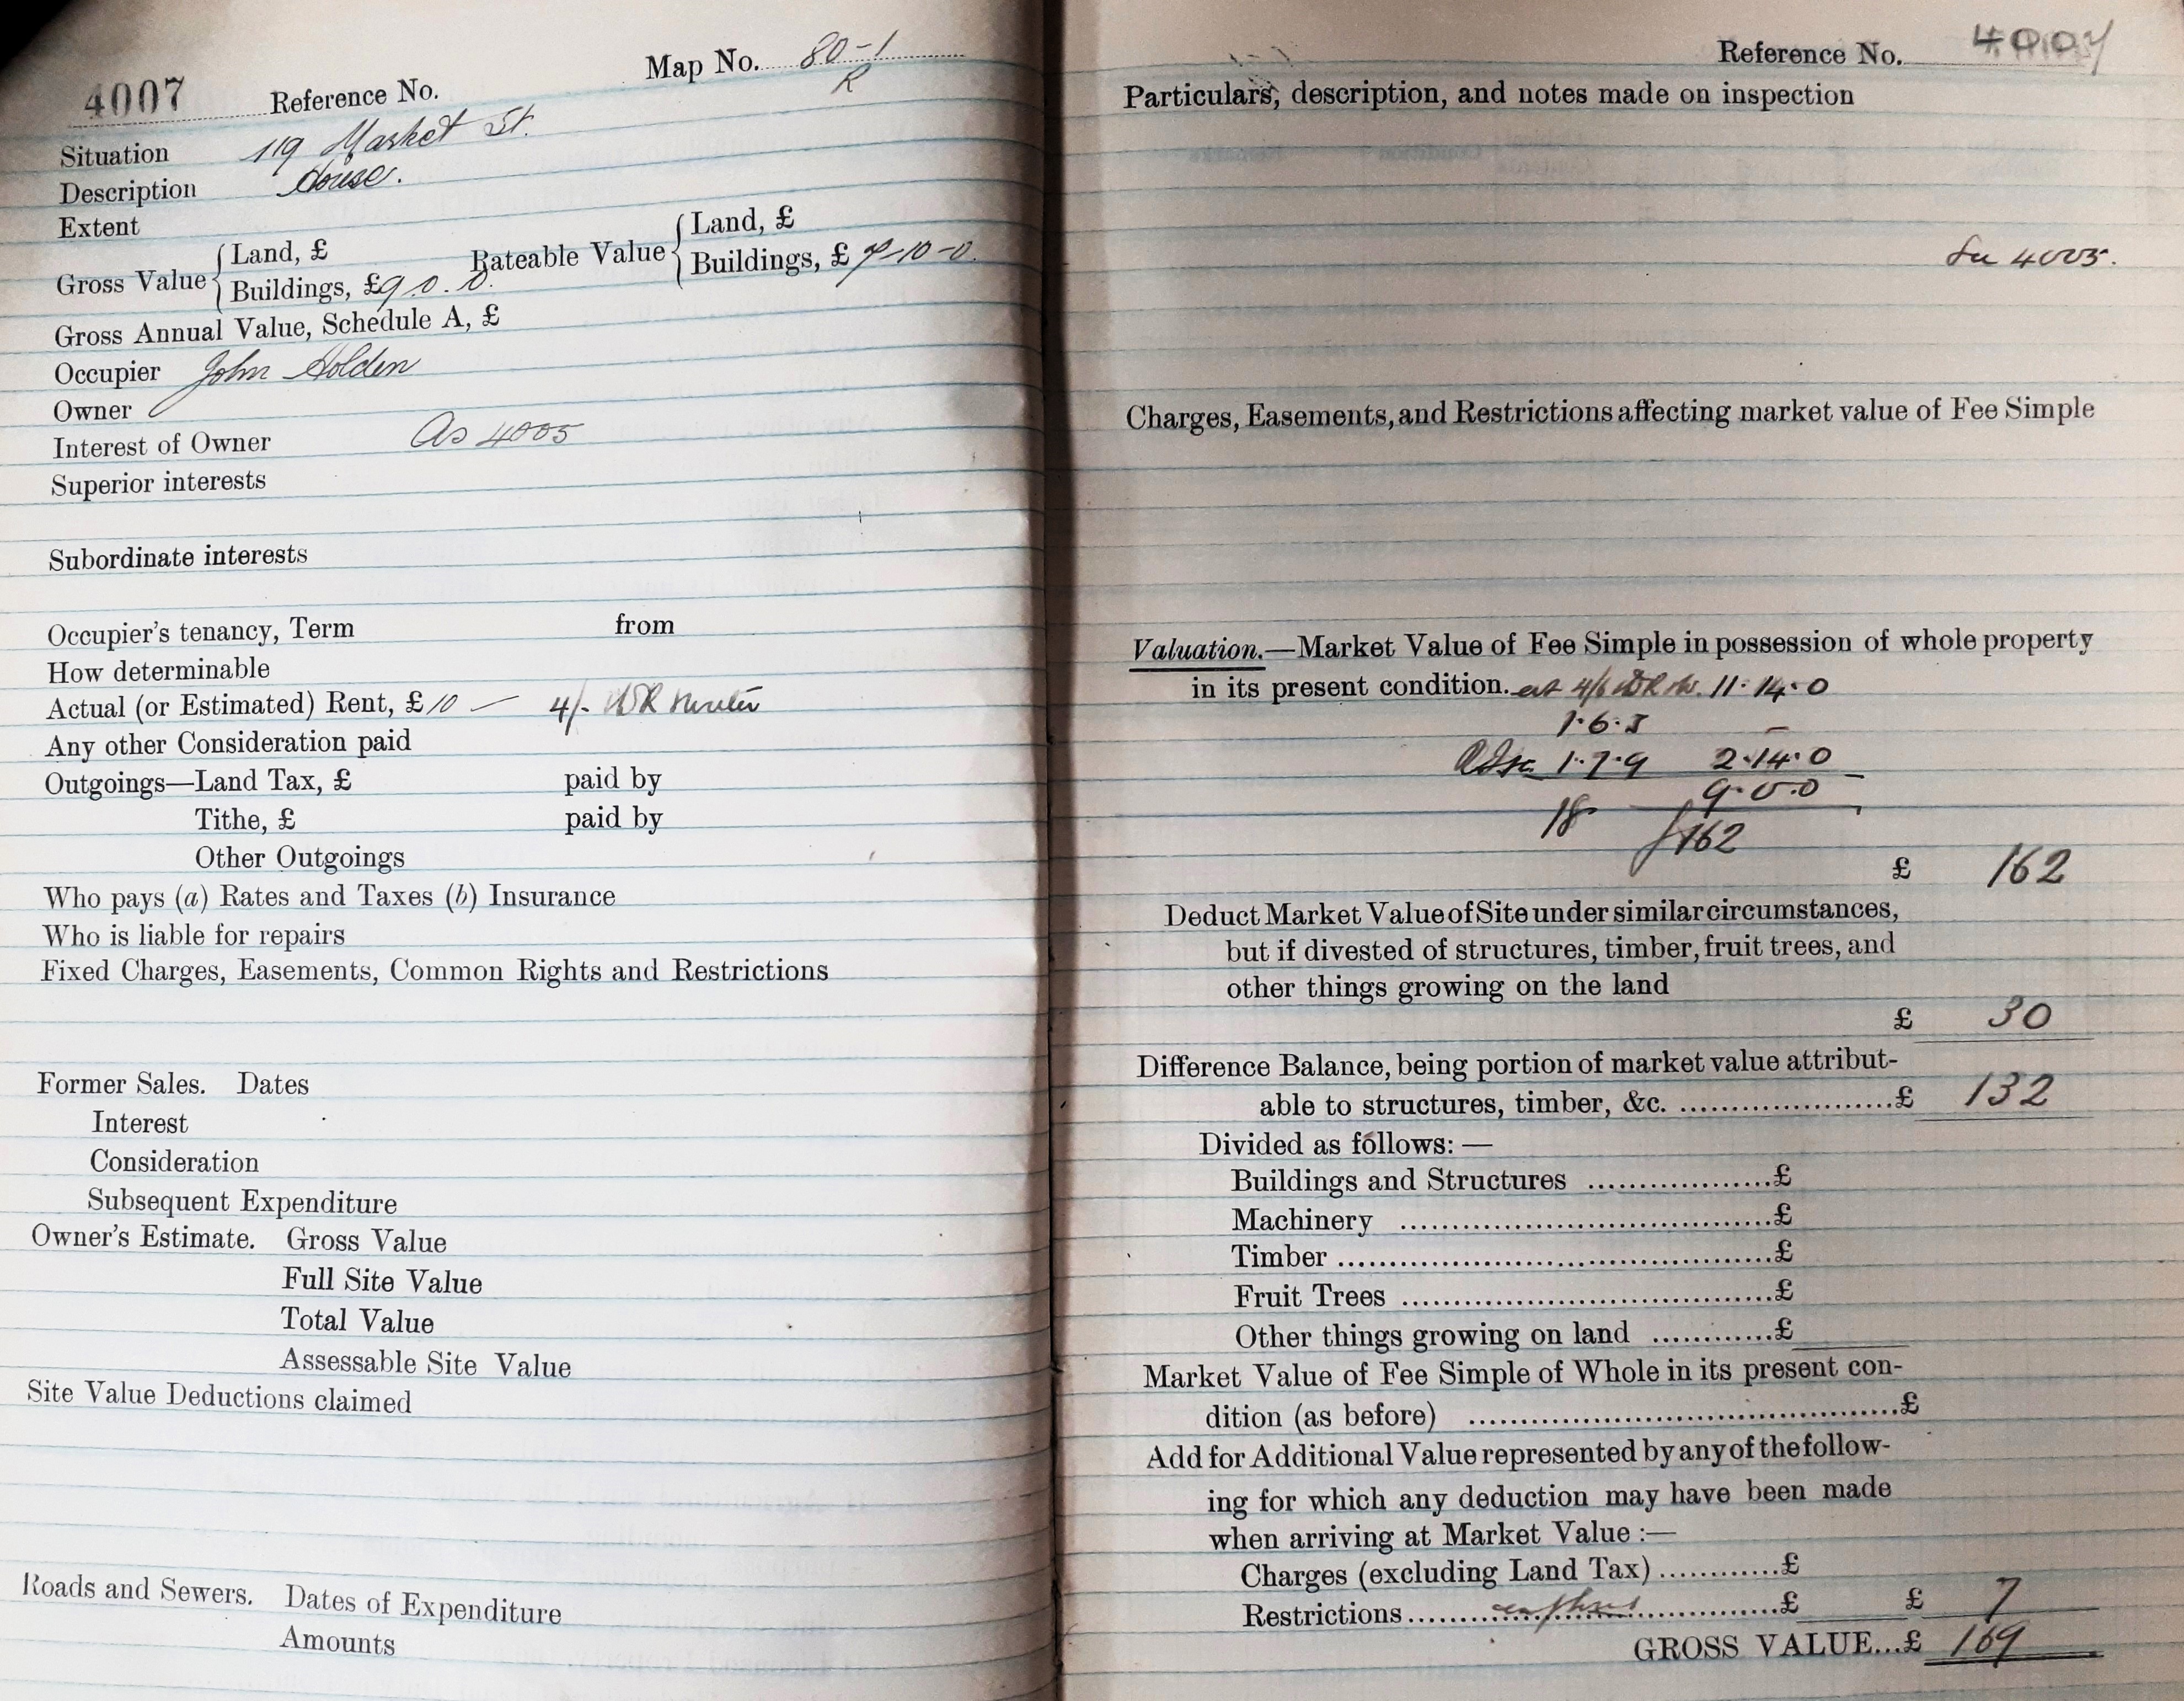 Map No. 80-1
R
4007 Reference No.
Situation 119 Market St.
Description House.
Extent
Gross Value { Land, £
Buildings, £9.0.0.
Rateable Value { Land, £
Buildings, £ 7-10-0.
Gross Annual Value, Schedule A, £
Occupier John Holden
Owner
Interest of Owner As 4005
Superior interests
Subordinate interests
Occupier's tenancy, Term from
How determinable
Actual (or Estimated) Rent, £10 — 4/-
Any other Consideration paid
Outgoings—Land Tax, £ paid by
Tithe, £ paid by
Other Outgoings
Who pays (a) Rates and Taxes (b) Insurance
Who is liable for repairs
Fixed Charges, Easements, Common Rights and Restrictions
Former Sales. Dates
Interest
Consideration
Subsequent Expenditure
Owner's Estimate. Gross Value
Full Site Value
Total Value
Assessable Site Value
Site Value Deductions claimed
Roads and Sewers. Dates of Expenditure
Amounts
Reference No. 4007
Particulars, description, and notes made on inspection
See 4005.
Charges, Easements, and Restrictions affecting market value of Fee Simple
Valuation.—Market Value of Fee Simple in possession of whole property
in its present condition. at 4/6 11.14.0
1.6.3
1.7.9 2.14.0
9.0.0
18
£162
£ 162
Deduct Market Value of Site under similar circumstances,
but if divested of structures, timber, fruit trees, and
other things growing on the land
£ 30
Difference Balance, being portion of market value attribut-
able to structures, timber, &c. ....................£ 132
Divided as follows:—
Buildings and Structures ..................£
Machinery ..................£
Timber ..................£
Fruit Trees ..................£
Other things growing on land ............£
Market Value of Fee Simple of Whole in its present con-
dition (as before) ..................£
Add for Additional Value represented by any of the follow-
ing for which any deduction may have been made
when arriving at Market Value :—
Charges (excluding Land Tax)............£
Restrictions..................£ £ 7
GROSS VALUE...£ 169